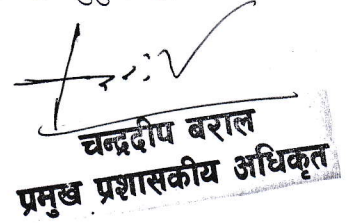 चन्द्रदीप बराल
प्रमुख प्रशासकीय अधिकृत